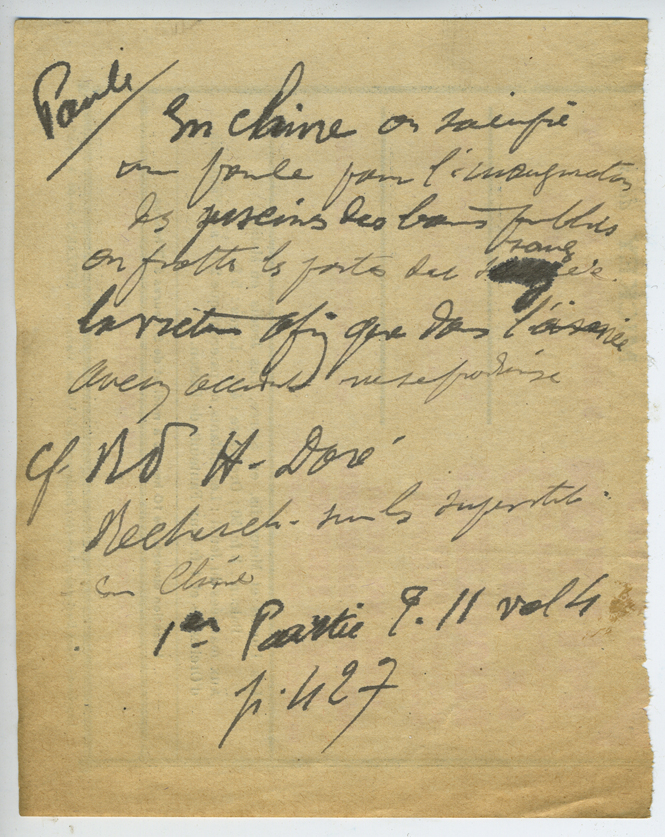 Poule
En Chine on sacrifie
une poule pour l'inauguration
des piscines des bains publics
on frotte les portes du sang de
la victime afin que dans l'avenir
aucun accident ne se produise
cf. H. Doré
Recherch. sur les superstit.
en Chine
1er Partie T. II vol 4
p. 427